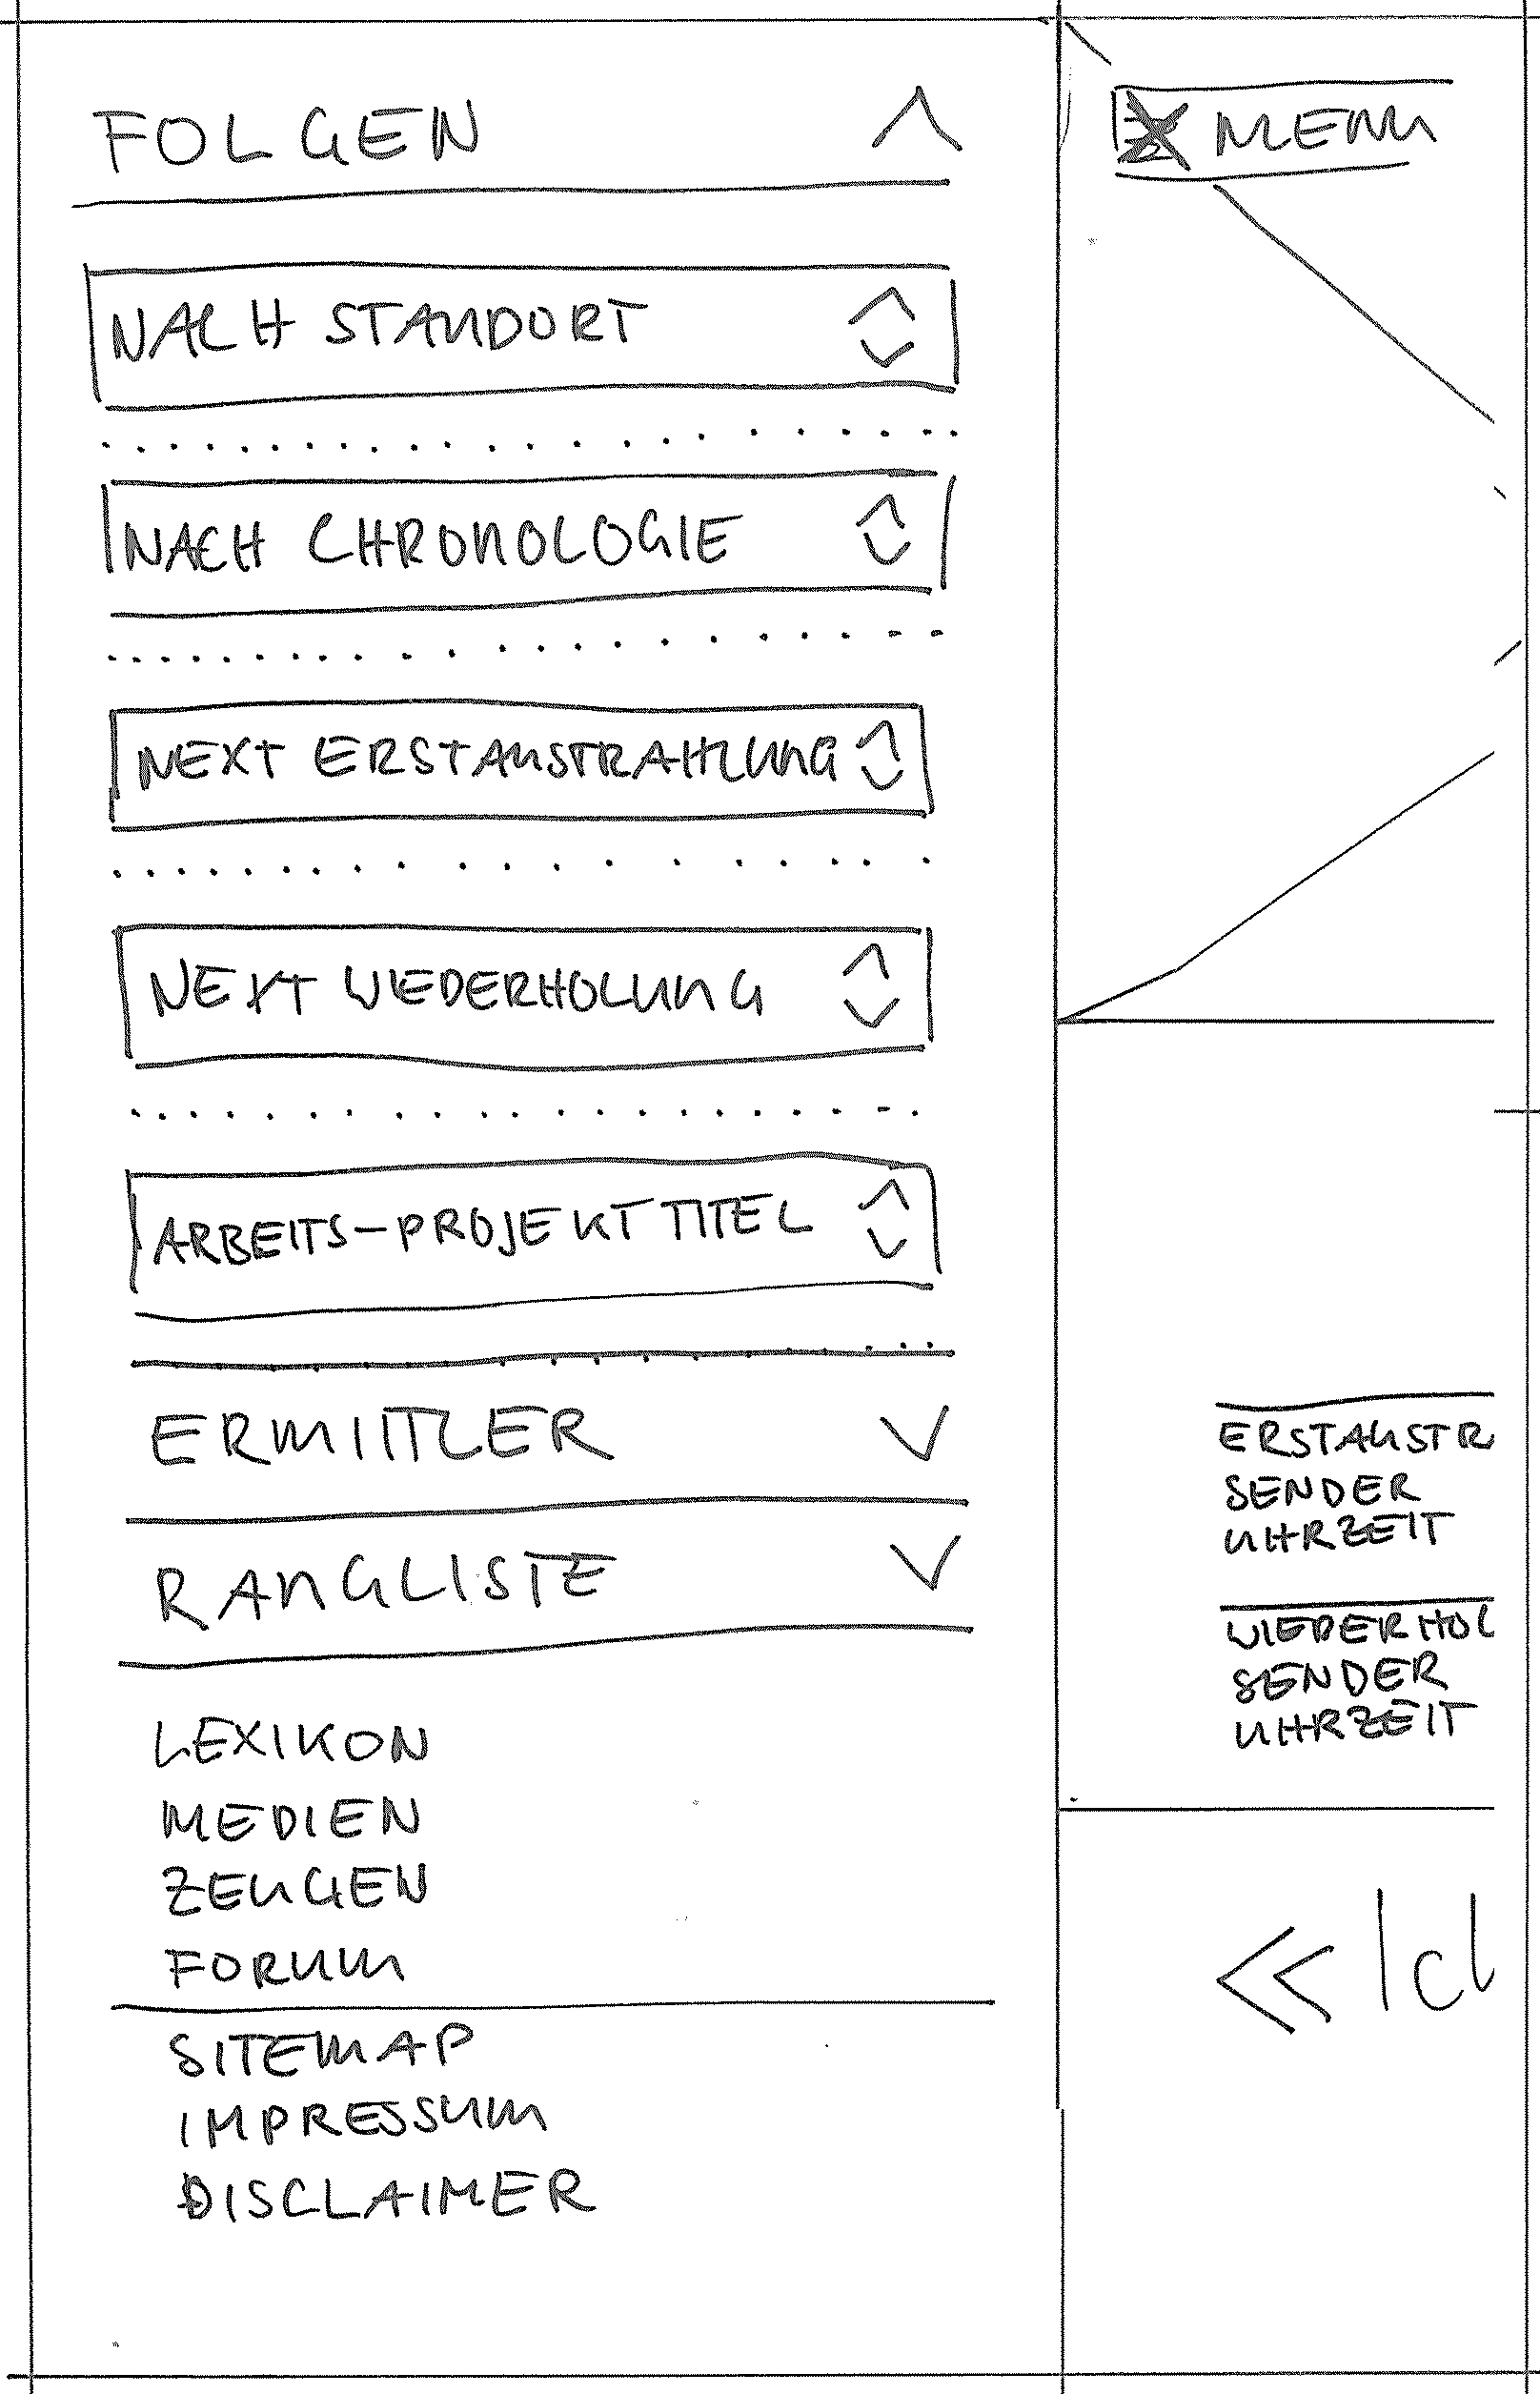 FOLGEN
NACH STANDORT
NACH CHRONOLOGIE
NEXT ERSTAUSTRAHLUNG
NEXT WIEDERHOLUNG
ARBEITS-PROJEKT TITEL
ERMITTLER
RANGLISTE
LEXIKON
MEDIEN
ZEUGEN
FORUM
SITEMAP
IMPRESSUM
DISCLAIMER
MENU
ERSTAUSTR
SENDER
UHRZEIT
WIEDERHOL
SENDER
UHRZEIT